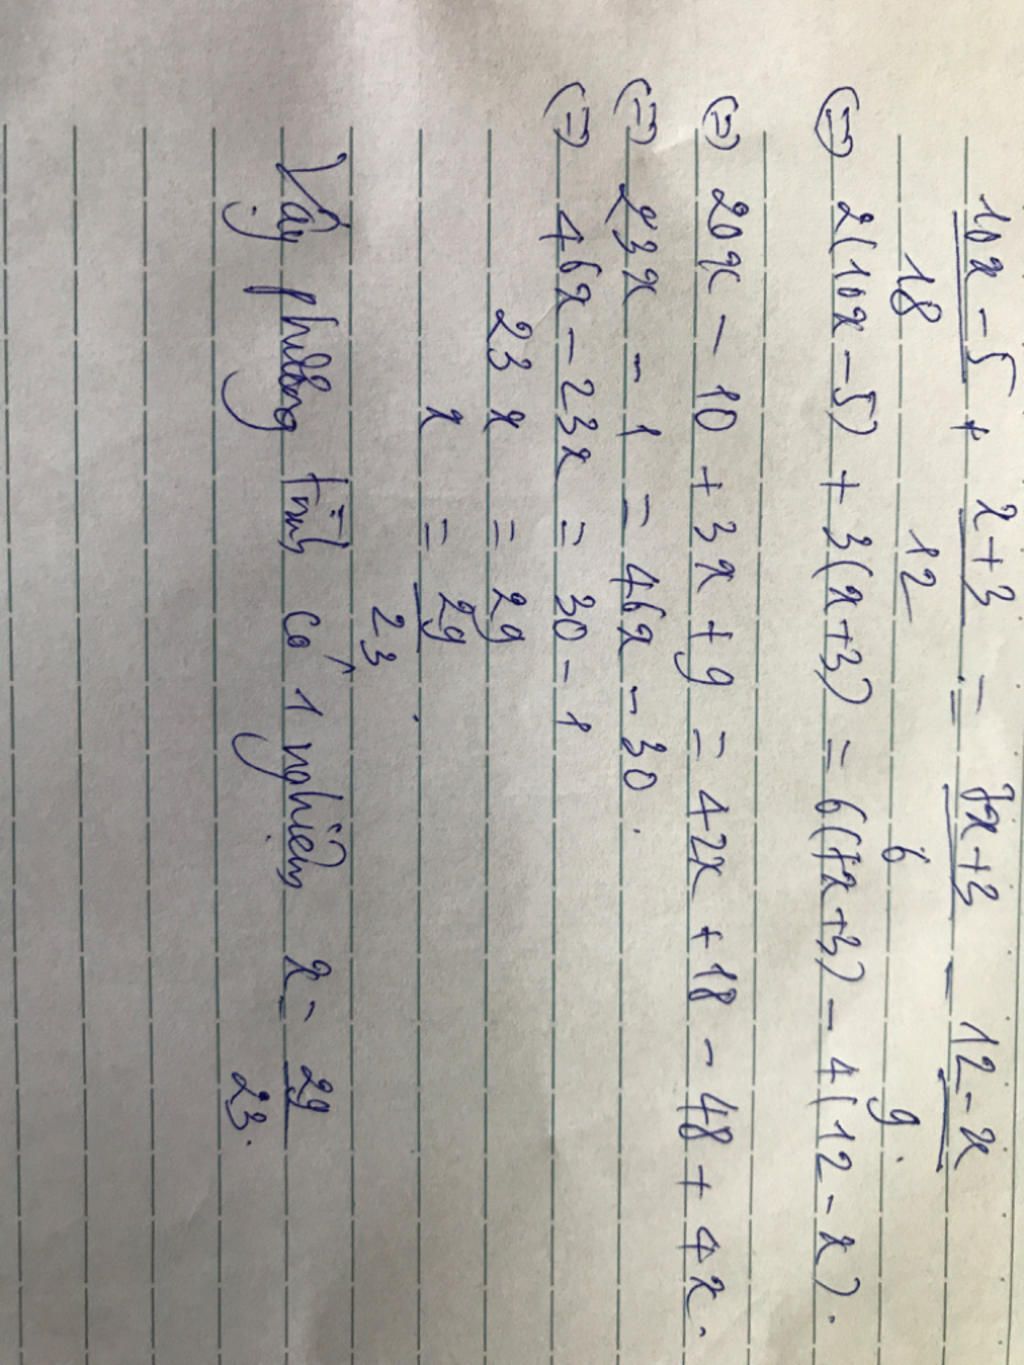 10x - 5 + x + 3 = 7x + 3 - 12 - x
18 12 6 9.
(=) 2(10x - 5) + 3(x + 3) = 6(7x + 3) - 4(12 - x).
(=) 20x - 10 + 3x + 9 = 42x + 18 - 48 + 4x.
(=) 23x - 1 = 46x - 30.
(=) 46x - 23x = 30 - 1
23x = 29
x = 29
23
Vậy phương trình có 1 nghiệm x = 29
23.